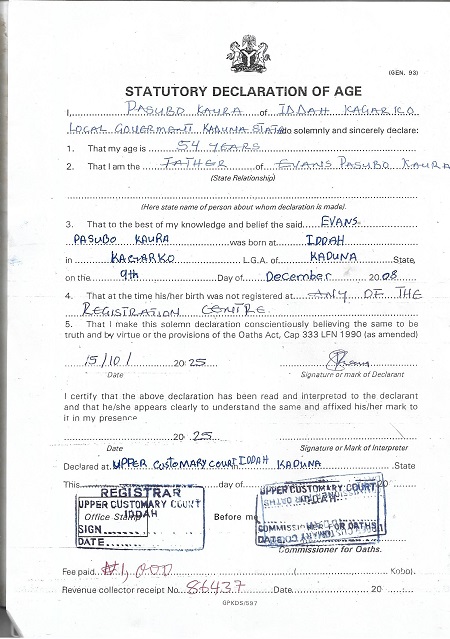 (GEN. 93)
STATUTORY DECLARATION OF AGE
I, PASUBO KAURA of IDDAH KAGARKO
LOCAL GOVERMENT KADUNA STATE do solemnly and sincerely declare:
1. That my age is 54 YEARS
2. That I am the FATHER of EVANS PASUBO KAURA
(State Relationship)
(Here state name of person about whom declaration is made).
3. That to the best of my knowledge and belief the said EVANS
PASUBO KAURA was born at IDDAH
in KAGARKO L.G.A. of KADUNA State,
on the 9th Day of December 2008
4. That at the time his/her birth was not registered at ANY OF THE
REGISTRATION CENTRE
5. That I make this solemn declaration conscientiously believing the same to be
truth and by virtue or the provisions of the Oaths Act, Cap 333 LFN 1990 (as amended)
15/10/ 2025
Date Signature or mark of Declarant
I certify that the above declaration has been read and interpreted to the declarant
and that he/she appears clearly to understand the same and affixed his/her mark to
it in my presence
2025
Date Signature or Mark of Interpreter
Declared at UPPER CUSTOMARY COURT IDDAH KADUNA State
This day of 20
REGISTRAR
UPPER CUSTOMARY COURT
IDDAH
Office Stamp
SIGN
DATE
Before me
UPPER CUSTOMARY COURT
COMMISSIONER FOR OATHS
DATE
Commissioner for Oaths.
Fee paid ₦1,000 ( Kobo).
Revenue collector receipt No. 86437 Date 20
GPKDS/597